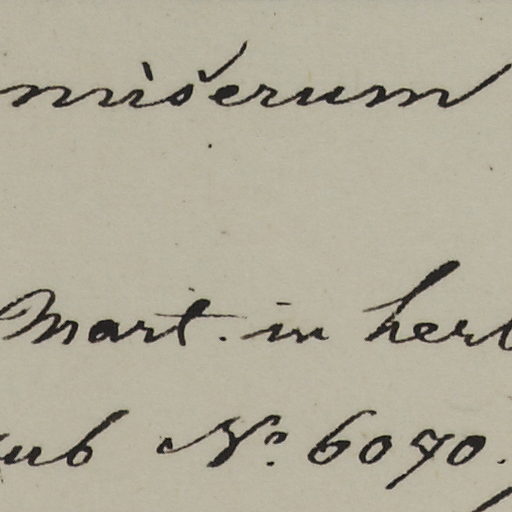 miserum
Mart. in herb
sub No. 6070.